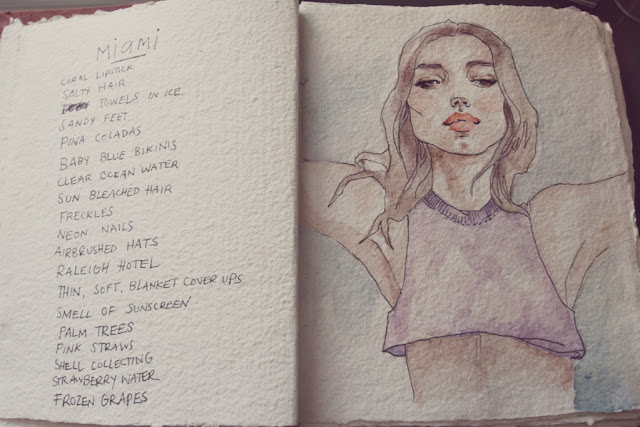 MIAMI
CORAL LIPSTICK
SALTY HAIR
TOWELS IN ICE
SANDY FEET
PINA COLADAS
BABY BLUE BIKINIS
CLEAR OCEAN WATER
SUN BLEACHED HAIR
FRECKLES
NEON NAILS
AIRBRUSHED HATS
RALEIGH HOTEL
THIN, SOFT, BLANKET COVER UPS
SMELL OF SUNSCREEN
PALM TREES
PINK STRAWS
SHELL COLLECTING
STRAWBERRY WATER
FROZEN GRAPES